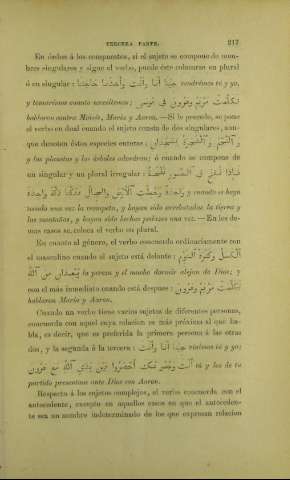 TERCERA PARTE. 217
En órden á los compuestos, si el sujeto se compone de nom-
bres singulares y sigue el verbo, puede éste colocarse en plural
ó en singular: جينا أنا وأنت وأخذنا حاجتنا vendrémos tú y yo,
y tomarémos cuanto necesitemos; تكلمت مريم وهرون في موسى
hablaron contra Moisés, María y Aaron.—Si le precede, se pone
el verbo en dual cuando el sujeto consta de dos singulares, aun-
que denoten éstos especies enteras: والنجم والشجرة يسجدان
y las plantas y los árboles adoraban; ó cuando se compone de
un singular y un plural irregular: فإذا نفخ في الصور نفخة
واحدة وحملت الأرض والجبال فدكتا دكة واحدة y cuando se haya
tocado una vez la trompeta, y hayan sido arrebatadas la tierra y
las montañas, y hayan sido hechas pedazos una vez.—En los de-
mas casos se coloca el verbo en plural.
En cuanto al género, el verbo concuerda ordinariamente con
el masculino cuando el sujeto está delante: الكسل وكثرة النوم
يبعدان من الله la pereza y el mucho dormir alejan de Dios; y
con el más inmediato cuando está despues: تكلمت مريم وهرون
hablaron María y Aaron.
Cuando un verbo tiene varios sujetos de diferentes personas,
concuerda con aquel cuya relacion es más próxima al que ha-
bla, es decir, que es preferida la primera persona á las otras
dos, y la segunda á la tercera: جينا أنا وأنت vinimos tú y yo;
أنت احضروا بين يدي الله مع هرون tú y los de tu
partido presentaos ante Dios con Aaron.
Respecto á los sujetos complejos, el verbo concuerda con el
antecedente, excepto en aquellos casos en que el anteceden-
te sea un nombre indeterminado de los que expresan relacion